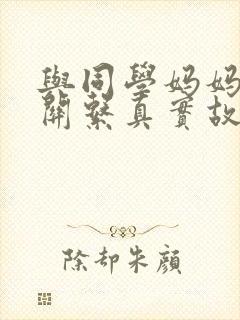 與同學媽媽
關繫真實故
除却朱顏